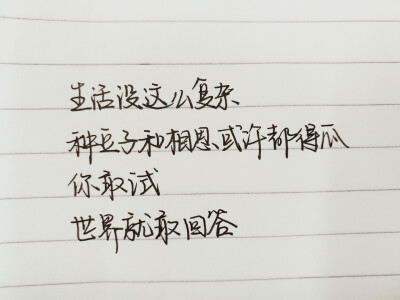 生活没这么复杂
种豆子和相思或许都得瓜
你敢试
世界就敢回答